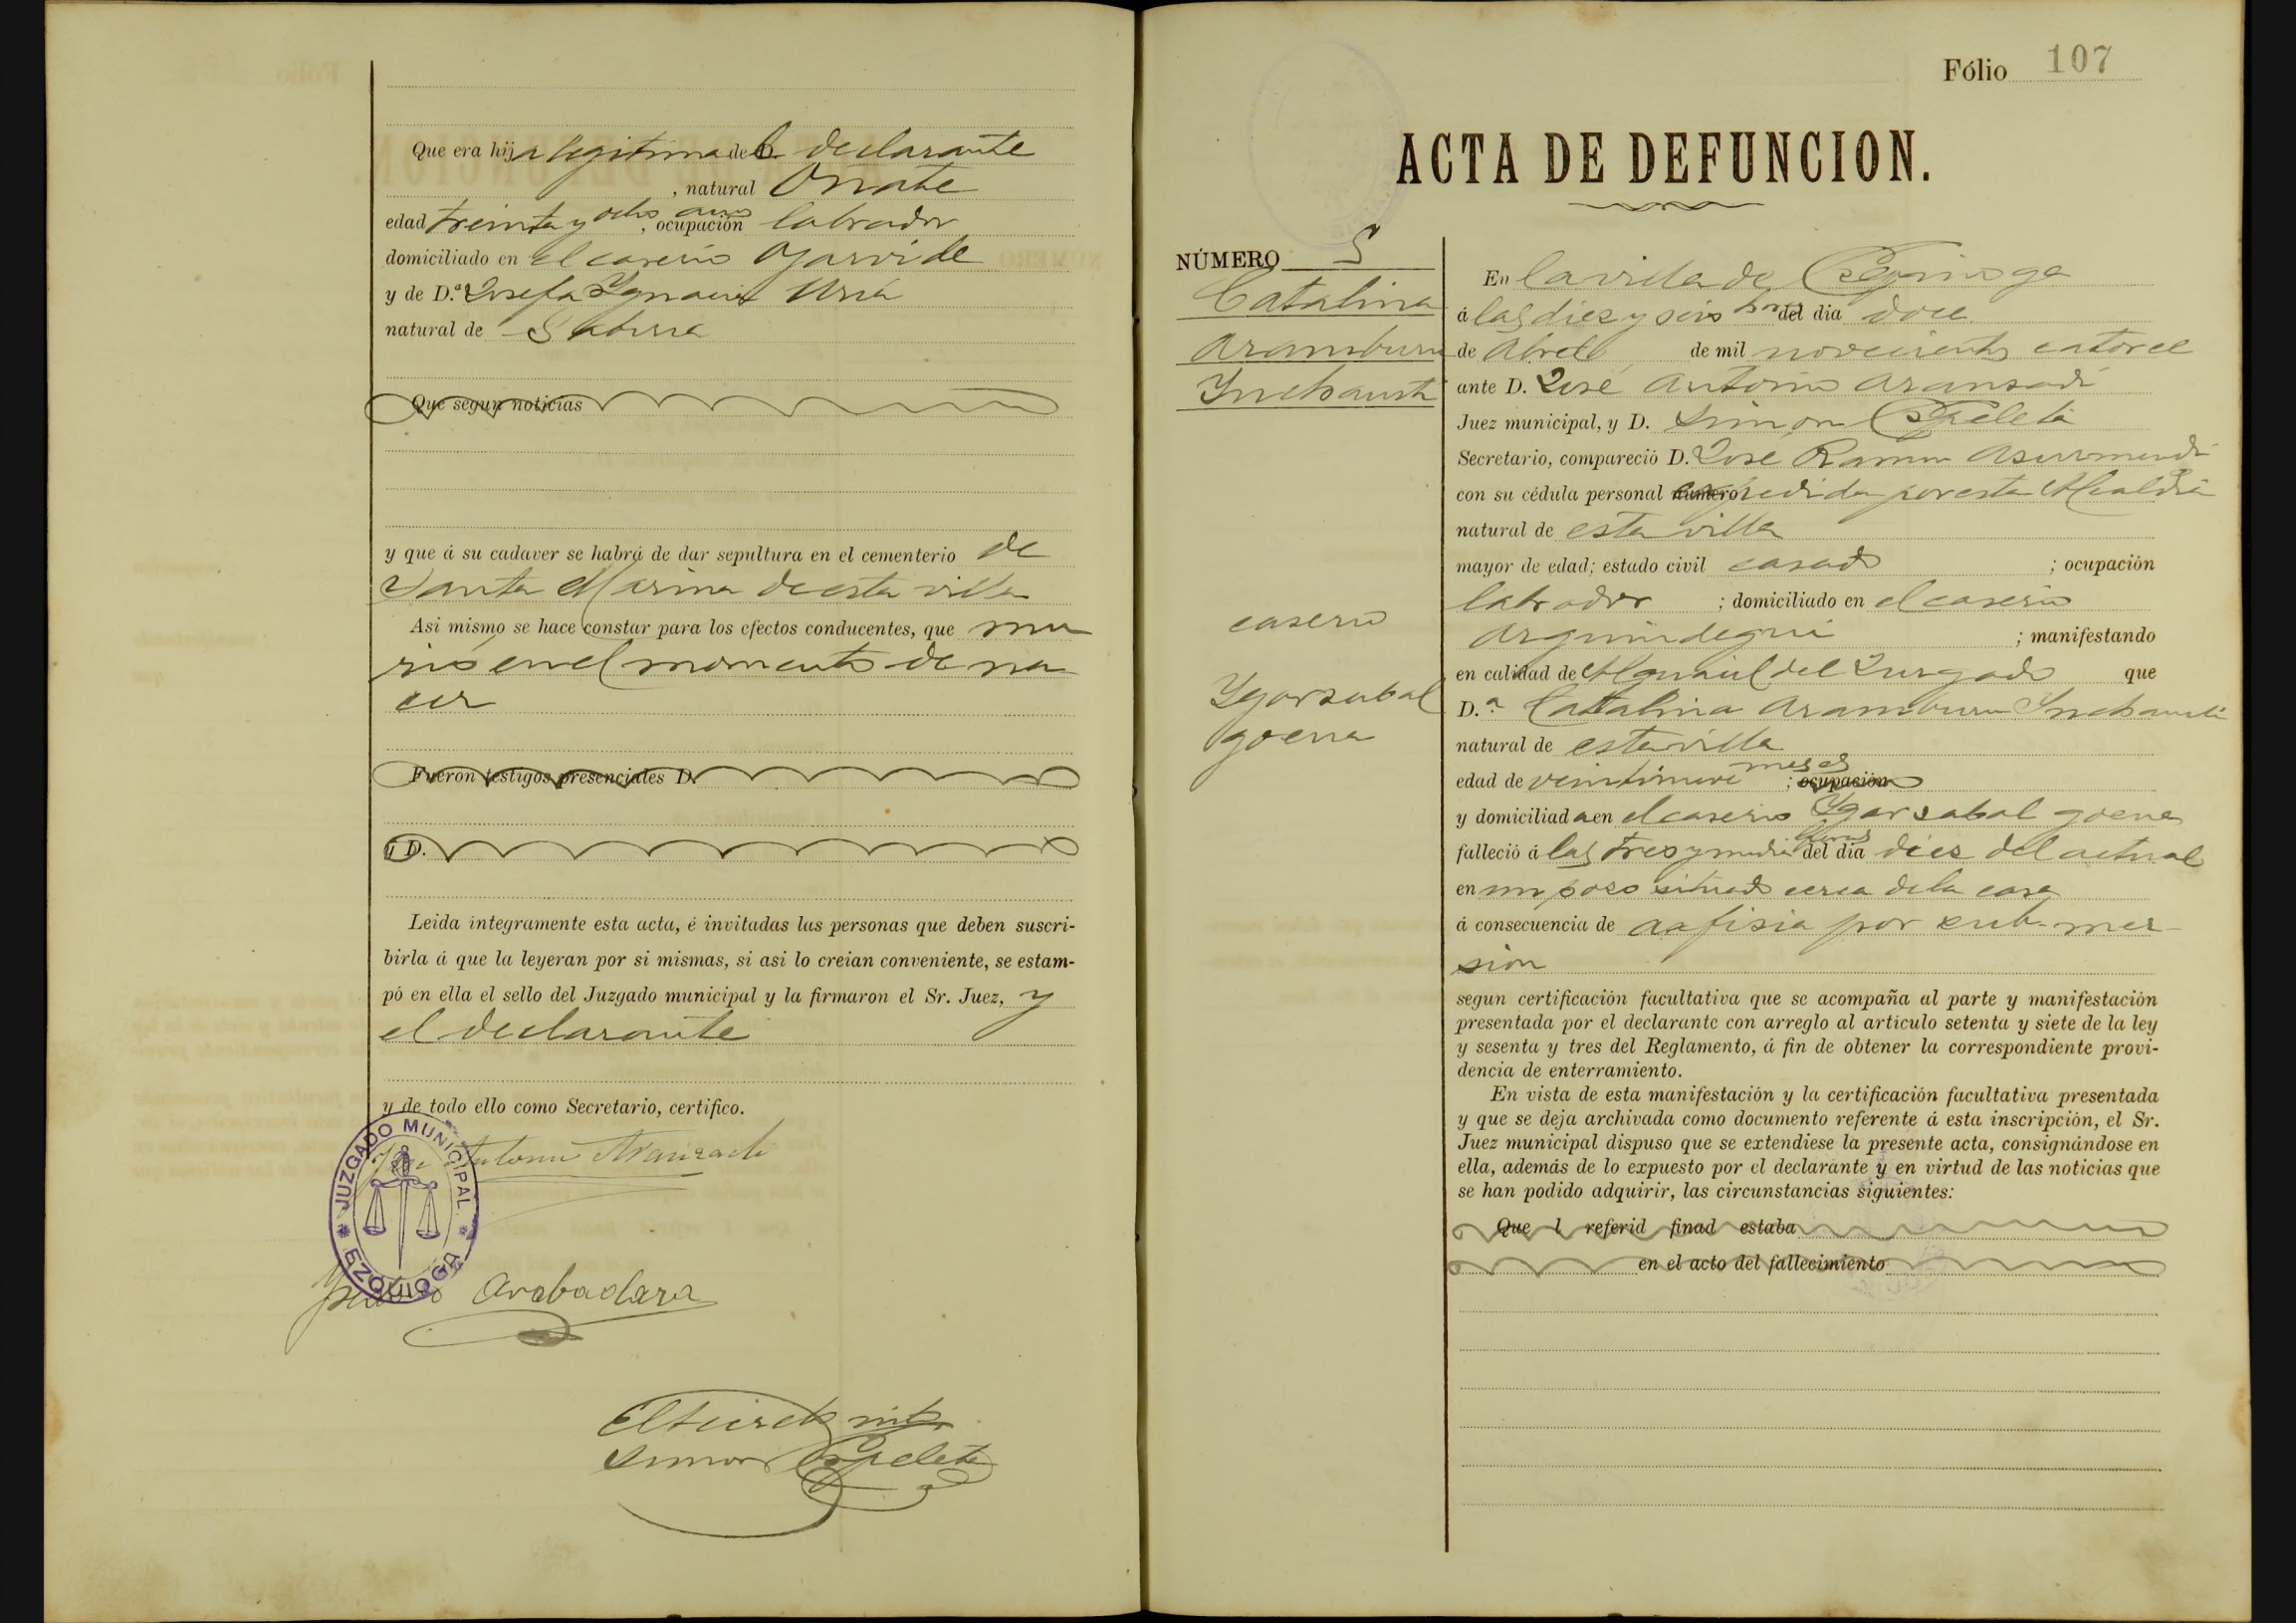 Que era hija legitima del declarante
, natural Oñate
edad treinta y ocho años, ocupación labrador
domiciliado en el caserio Ygarvide
y de D.ª Josefa Ygnacia Uria
natural de Gabiria
Que segun noticias
y que á su cadaver se habrá de dar sepultura en el cementerio de
Santa Marina de esta villa
Asi mismo se hace constar para los efectos conducentes, que mu
rió en el momento de na
cer
Fueron testigos presenciales D.
y D.
Leida integramente esta acta, é invitadas las personas que deben suscri-
birla á que la leyeran por si mismas, si asi lo creian conveniente, se estam-
pó en ella el sello del Juzgado municipal y la firmaron el Sr. Juez, y
el declarante
y de todo ello como Secretario, certifico.
José Antonio Aranzadi
JUZGADO MUNICIPAL
EZQUIOGA
Arabaolaza
Simon Ezpeleta
Fólio 107
ACTA DE DEFUNCION.
NÚMERO 5
Catalina
Aramburu
Ynchausti
caserio
Ygarzabal
goena
En la villa de Ezquioga
á las diez y seis hras del dia doce
de Abril de mil novecientos catorce
ante D. José Antonio Aranzadi
Juez municipal, y D. Simon Ezpeleta
Secretario, compareció D. José Ramon Aseurmendi
con su cédula personal numero expedida por esta Alcaldia
natural de esta villa
mayor de edad; estado civil casado ; ocupación
labrador ; domiciliado en el caserio
Arguindegui ; manifestando
en calidad de Alguacil del Juzgado que
D.ª Catalina Aramburu Ynchausti
natural de esta villa
edad de veintinueve meses ; ocupación
y domiciliada en el caserio Ygarzabal goena
falleció á las tres y media horas del dia diez del actual
en un pozo situado cerca de la casa
á consecuencia de asfisia por sub-mer-
sion
segun certificación facultativa que se acompaña al parte y manifestación
presentada por el declarante con arreglo al articulo setenta y siete de la ley
y sesenta y tres del Reglamento, á fin de obtener la correspondiente provi-
dencia de enterramiento.
En vista de esta manifestación y la certificación facultativa presentada
y que se deja archivada como documento referente á esta inscripción, el Sr.
Juez municipal dispuso que se extendiese la presente acta, consignándose en
ella, además de lo expuesto por el declarante y en virtud de las noticias que
se han podido adquirir, las circunstancias siguientes:
Que l referid finad estaba
en el acto del fallecimiento